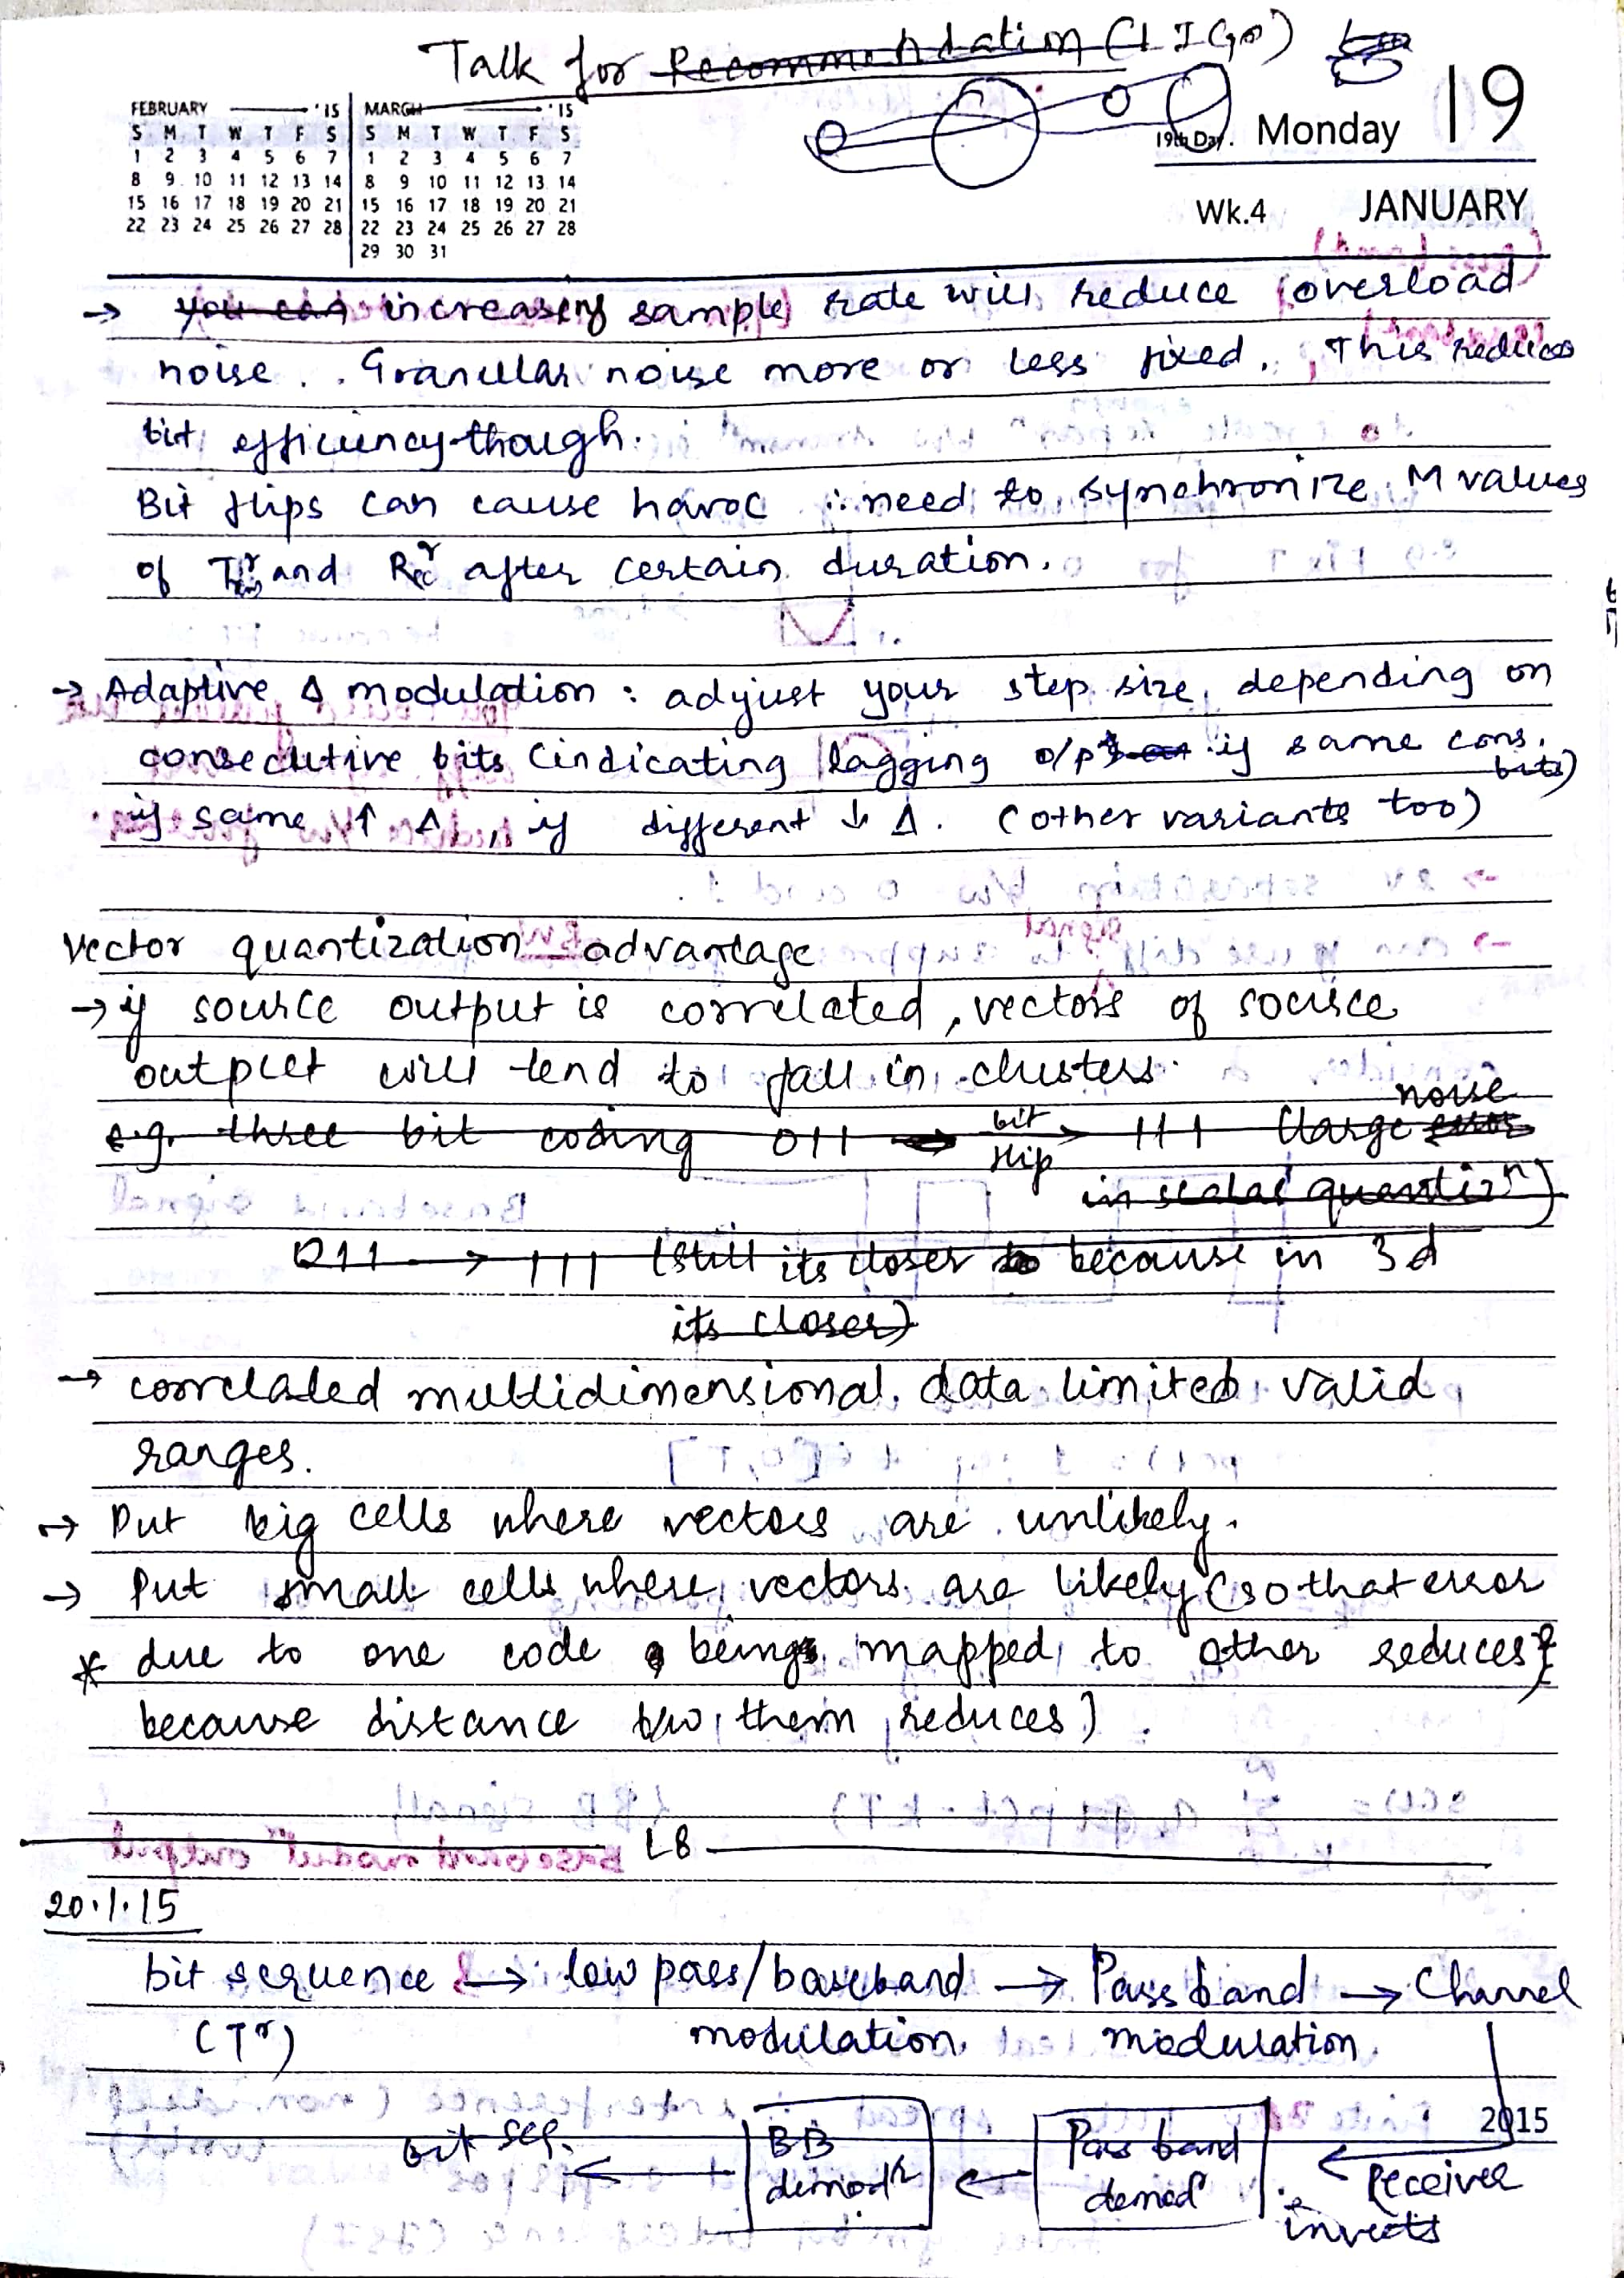 Talk for Recommendation (LIGO)
FEBRUARY '15 MARCH '15
S M T W T F S S M T W T F S
1 2 3 4 5 6 7 1 2 3 4 5 6 7
8 9 10 11 12 13 14 8 9 10 11 12 13 14
15 16 17 18 19 20 21 15 16 17 18 19 20 21
22 23 24 25 26 27 28 22 23 24 25 26 27 28
29 30 31
19th Day. Monday 19
Wk.4 JANUARY
→ you can increasing sample rate will reduce overload
noise. Granular noise more or less fixed. This reduces
bit efficiency though.
Bit flips can cause havoc ∴ need to synchronize M values
of and after certain duration.
→ Adaptive Δ modulation: adjust your step size depending on
consecutive bits (indicating lagging o/p if same cons. bits)
if same ↑ Δ, if different ↓ Δ. (other variants too)
Vector quantization advantage
→ if source output is correlated, vectors of source
output will tend to fall in clusters.
e.g. three bit coding 011 → bit flip 111 (large error noise
in scalar quantizn)
011 → 111 (still its closer because in 3d
its closer)
→ correlated multidimensional data limited valid
ranges.
→ Put big cells where vectors are unlikely.
→ Put small cells where vectors are likely (so that error
* due to one code being mapped to other reduces
because distance b/w them reduces)
L8
20.1.15
bit sequence → low pass/baseband → Pass band → Channel
(Tr) modulation modulation.
2015
bit seq. ← BB demodn ← Pass band demodn ← Receiver
inverts